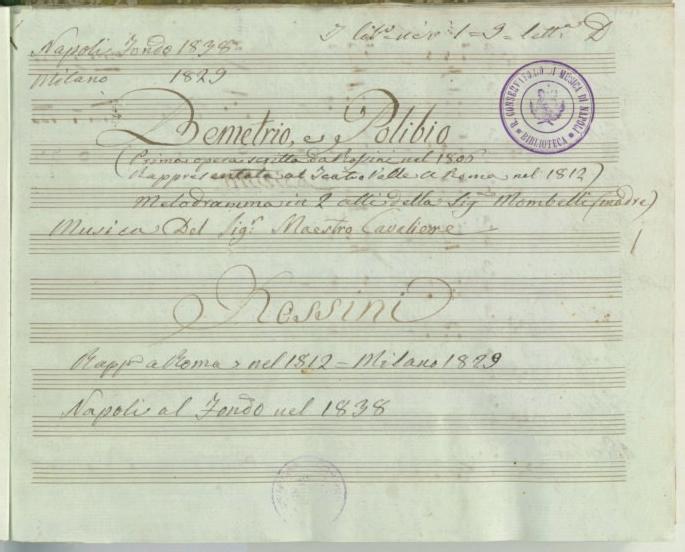 Napoli Fondo 1838
Milano 1829
R. CONSERVATORIO DI MUSICA DI NAPOLI
BIBLIOTECA
Demetrio, e Polibio
(Prima opera scritta da Rossini nel
Rappresentata al Teatro Valle a Roma nel 1812)
Melodramma in 2 atti della Sig.ra Mombelli (madre)
Musica Del Sig.r Maestro Cavaliere
Rossini
Rapp.ta a Roma nel 1812 = Milano 1829
Napoli al Fondo nel 1838